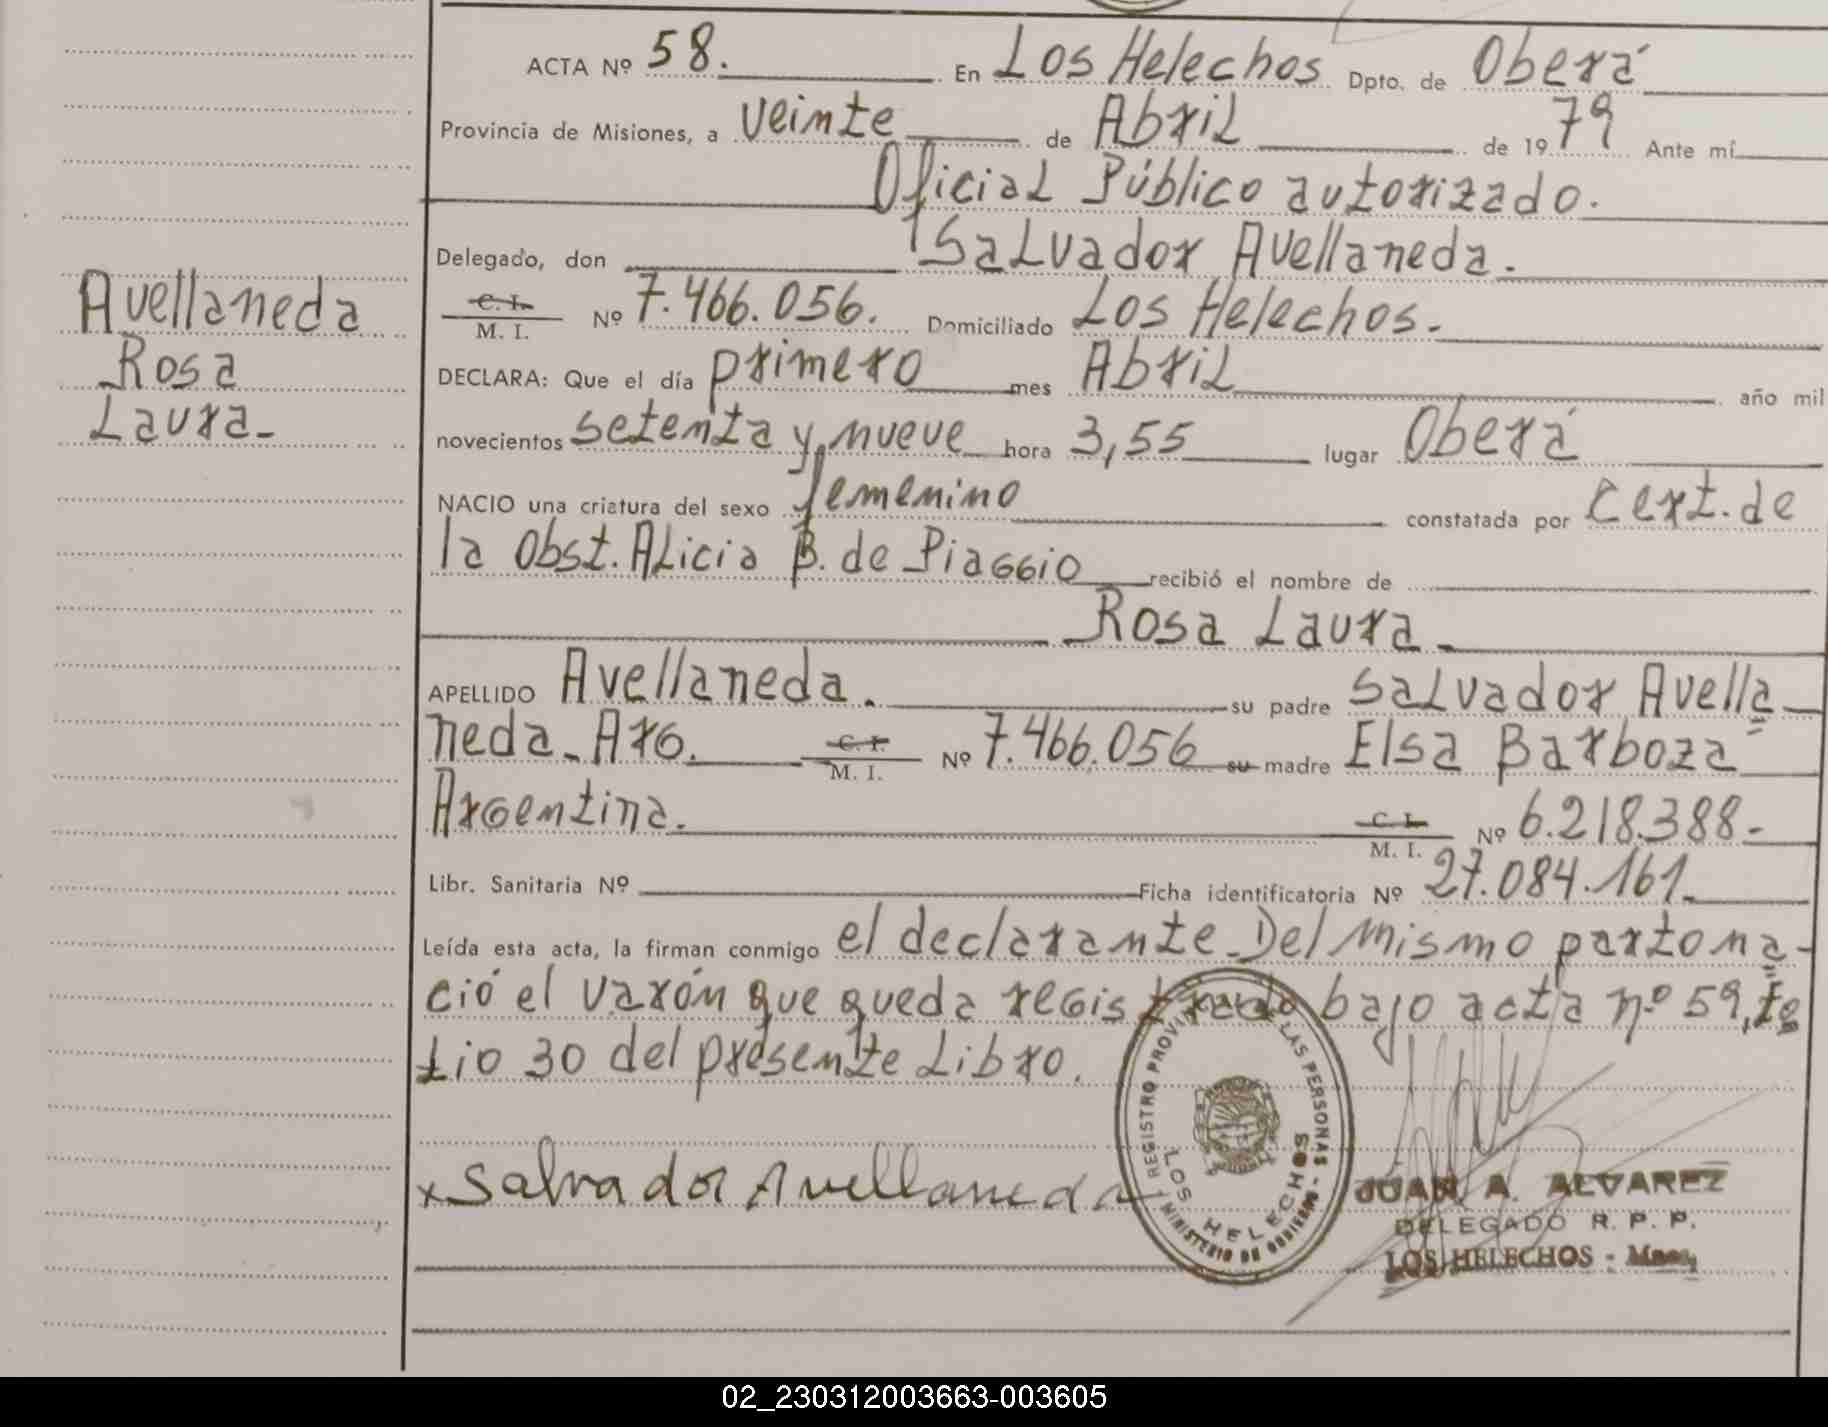 ACTA Nº 58. En Los Helechos Dpto. de Oberá
Provincia de Misiones, a veinte de Abril de 1979 Ante mí
Oficial Público autorizado.
Delegado, don Salvador Avellaneda.
C. I. M. I. Nº 7.466.056. Domiciliado Los Helechos.
DECLARA: Que el día primero mes Abril año mil
novecientos setenta y nueve hora 3,55 lugar Oberá
NACIO una criatura del sexo femenino constatada por Cert. de
la Obst. Alicia B. de Piaggio recibió el nombre de
Rosa Laura
APELLIDO Avellaneda. su padre Salvador Avella
neda - Arg. C. I. M. I. Nº 7.466.056 su madre Elsa Barboza
Argentina. C. I. M. I. Nº 6.218.388-
Libr. Sanitaria Nº Ficha identificatoria Nº 27.084.161
Leída esta acta, la firman conmigo el declarante. Del mismo parto na-
ció el varón que queda registrado bajo acta nº 59, fo
lio 30 del presente Libro.
Avellaneda
Rosa
Laura-
x Salvador Avellaneda
REGISTRO LAS PERSONAS - MINISTERIO DE GOBIERNO -
LOS HELECHOS
JUAN A. ALVAREZ
DELEGADO R. P. P.
LOS HELECHOS - Mnes.
02_230312003663-003605